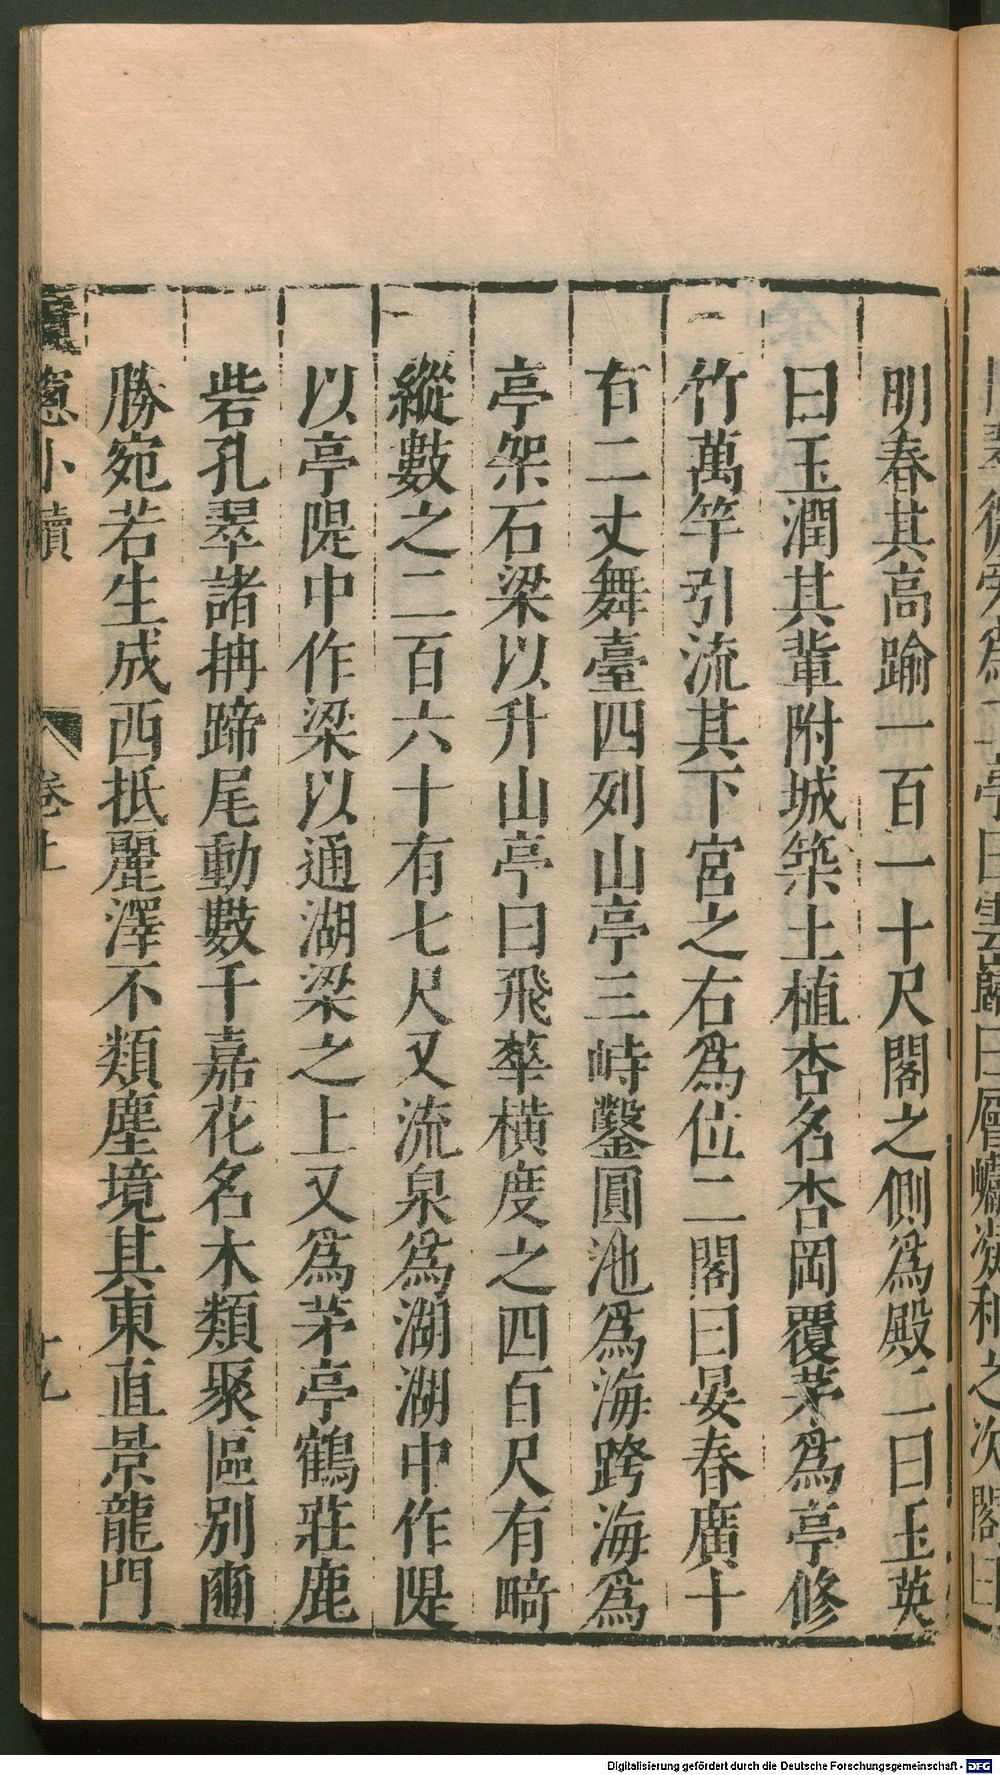 明春其高踰一百一十尺閣之側爲殿二曰玉英
曰玉潤其輩附城築土植杏名杏岡覆茅爲亭修
竹萬竿引流其下宮之右爲位二閣曰晏春廣十
有二丈舞臺四列山亭三峙鑿圓池爲海跨海爲
亭架石梁以升山亭曰飛華橫度之四百尺有畸
縱數之二百六十有七尺又流泉爲湖湖中作隄
以亭隄中作梁以通湖梁之上又爲茅亭鶴莊鹿
砦孔翠諸柵蹄尾動數千嘉花名木類聚區別爾
勝宛若生成西抵麗澤不類塵境其東直景龍門
窻小牘
卷上
十九
Digitalisierung gefördert durch die Deutsche Forschungsgemeinschaft - DFG